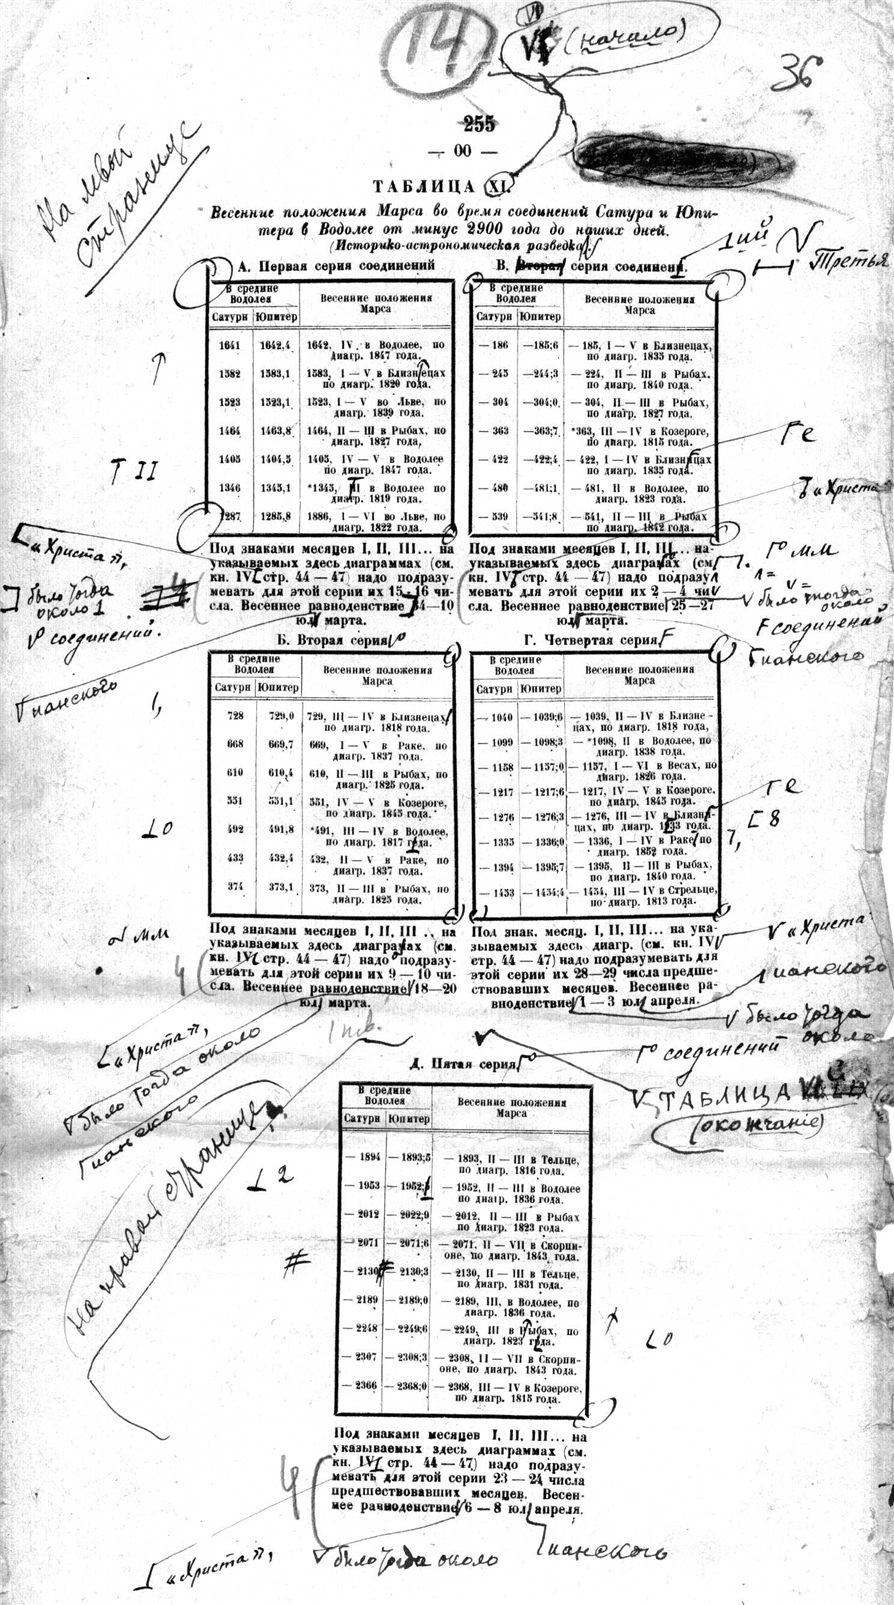 14
VI
(начало)
36
255
— 00 —
На левой
странице
ТАБЛИЦА XI.
Весенние положения Марса во время соединений Сатура и Юпи-
тера в Водолее от минус 2900 года до наших дней.
(Историко-астрономическая разведка)
1ий
Третья
А. Первая серия соединений
В средине Водолея | Весенние положения Марса
Сатурн | Юпитер
1641 | 1642,4 | 1642, IV в Водолее, по
диагр. 1847 года.
1582 | 1583,1 | 1583, I — V в Близнецах
по диагр. 1820 года.
1523 | 1523,1 | 1523, I — V во Льве, по
диагр. 1839 года.
1464 | 1463,8 | 1464, II — III в Рыбах, по
диагр. 1827 года,
1405 | 1404,5 | 1405, IV — V в Водолее
по диагр. 1847 года.
1346 | 1345,1 | *1345, III в Водолее по
диагр. 1819 года.
1287 | 1285,8 | 1886, I — VI во Льве, по
диагр. 1822 года.
Под знаками месяцев I, II, III... на
указываемых здесь диаграммах (см.
кн. IV, стр. 44 — 47) надо подразу-
мевать для этой серии их 15—16 чи-
сла. Весеннее равноденствие 14—10
юл. марта.
В. Вторая серия соединени.
В средине Водолея | Весенние положения Марса
Сатурн | Юпитер
— 186 | —185;6 | — 185, I — V в Близнецах,
по диагр. 1835 года.
— 245 | —244;3 | — 224, II — III в Рыбах.
по диагр. 1840 года.
— 304 | —304;0 | — 304, II — III в Рыбах,
по диагр. 1827 года.
— 363 | —363;7 | *363, III — IV в Козероге,
по диагр. 1815 года.
— 422 | —422;4 | — 422, I — IV в Близнцах
по диагр. 1835 года.
— 480 | —481;1 | — 481, II в Водолее, по
диагр. 1823 года.
— 539 | —541;8 | — 541, II — III в Рыбах
по диагр. 1842 года.
Под знаками месяцев I, II, III... на-
указываемых здесь диаграмах (см
кн. IV стр. 44 — 47) надо подразу
мевать для этой серии их 2 — 4 чи
сла. Весеннее равноденствие 25 —27
юл. марта.
Г е
Т II
„Христа“
„Христа“,
было тогда
около 1
соединений.
мм
было тогда
около
соединений
ианского
ианского
Б. Вторая серия
В средине Водолея | Весенние положения Марса
Сатурн | Юпитер
728 | 729,0 | 729, III — IV в Близнецах
по диагр. 1818 года.
668 | 669,7 | 669, I — V в Раке, по
диагр. 1837 года.
610 | 610,4 | 610, II — III в Рыбах, по
диагр. 1825 года.
551 | 551,1 | 551, IV — V в Козероге,
по диагр. 1845 года.
492 | 491,8 | *491, III — IV в Водолее,
по диагр. 1817 года.
433 | 432,4 | 432, II — V в Раке, по
диагр. 1837 года.
374 | 373,1 | 373, II — III в Рыбах, по
диагр. 1825 года.
Под знаками месяцев I, II, III .., на
указываемых здесь диаграмах (см.
кн. IV, стр. 44 — 47) надо подразу-
мевать для этой серии их 9 — 10 чи-
сла. Весеннее равноденствие 18—20
юл. марта.
Г. Четвертая серия
В средине Водолея | Весенние положения Марса
Сатурн | Юпитер
— 1040 | — 1039;6 | — 1039, II — IV в Близне-
цах, по диагр. 1818 года,
— 1099 | — 1098;3 | — *1098, II в Водолее, по
диагр. 1838 года.
— 1158 | — 1157;0 | — 1157, I — VI в Весах, по
диагр. 1826 года.
— 1217 | — 1217;6 | — 1217, IV — V в Козероге.
по диагр. 1845 года.
— 1276 | — 1276;3 | — 1276, III — IV в Близн-
цах, по диагр. 1833 года.
— 1335 | — 1336;0 | — 1336, I — IV в Раке по
диагр. 1852 года.
— 1394 | — 1395,7 | — 1395, II — III в Рыбах,
по диагр. 1840 года.
— 1453 | — 1454;4 | — 1454, III — IV в Стрельце,
по диагр. 1813 года.
Под знак. месяц. I, II, III... на ука-
зываемых здесь диагр. (см. кн. IV
стр. 44 — 47) надо подразумевать для
этой серии их 28—29 числа предше-
ствовавших месяцев. Весеннее ра-
вноденствие 1 — 3 юл. апреля.
о
Г е
8
мм
„Христа“
ианского
было тогда
соединений около
„Христа“,
было тогда около
ианского
ТАБЛИЦА
(окончание)
на правой странице
Д. Пятая серия
В средине Водолея | Весенние положения Марса
Сатурн | Юпитер
— 1894 | — 1893;5 | — 1893, II — III в Тельце,
по диагр. 1816 года.
— 1953 | — 1952; | — 1952, II — III в Водолее
по диагр. 1836 года.
— 2012 | — 2022;9 | — 2012, II — III в Рыбах
по диагр. 1823 года.
— 2071 | — 2071;6 | — 2071, II — VII в Скорпи-
оне, по диагр. 1843 года.
— 2130 | — 2130;3 | — 2130, II — III в Тельце,
по диагр. 1831 года.
— 2189 | — 2189;0 | — 2189, III, в Водолее, по
диагр. 1836 года.
— 2248 | — 2249;6 | — 2249, III в Рыбах, по
диагр. 1823 года.
— 2307 | — 2308;3 | — 2308, II — VII в Скорпи-
оне, по диагр. 1843 года.
— 2366 | — 2368;0 | — 2368, III — IV в Козероге,
по диагр. 1815 года.
2
#
о
Под знаками месяцев I, II, III... на
указываемых здесь диаграммах (см.
кн. IV, стр. 44 — 47) надо подразу-
мевать для этой серии 23 — 24 числа
предшествовавших месяцев. Весен-
нее равноденствие 6 — 8 юл. апреля.
„Христа“,
было тогда около
ианского